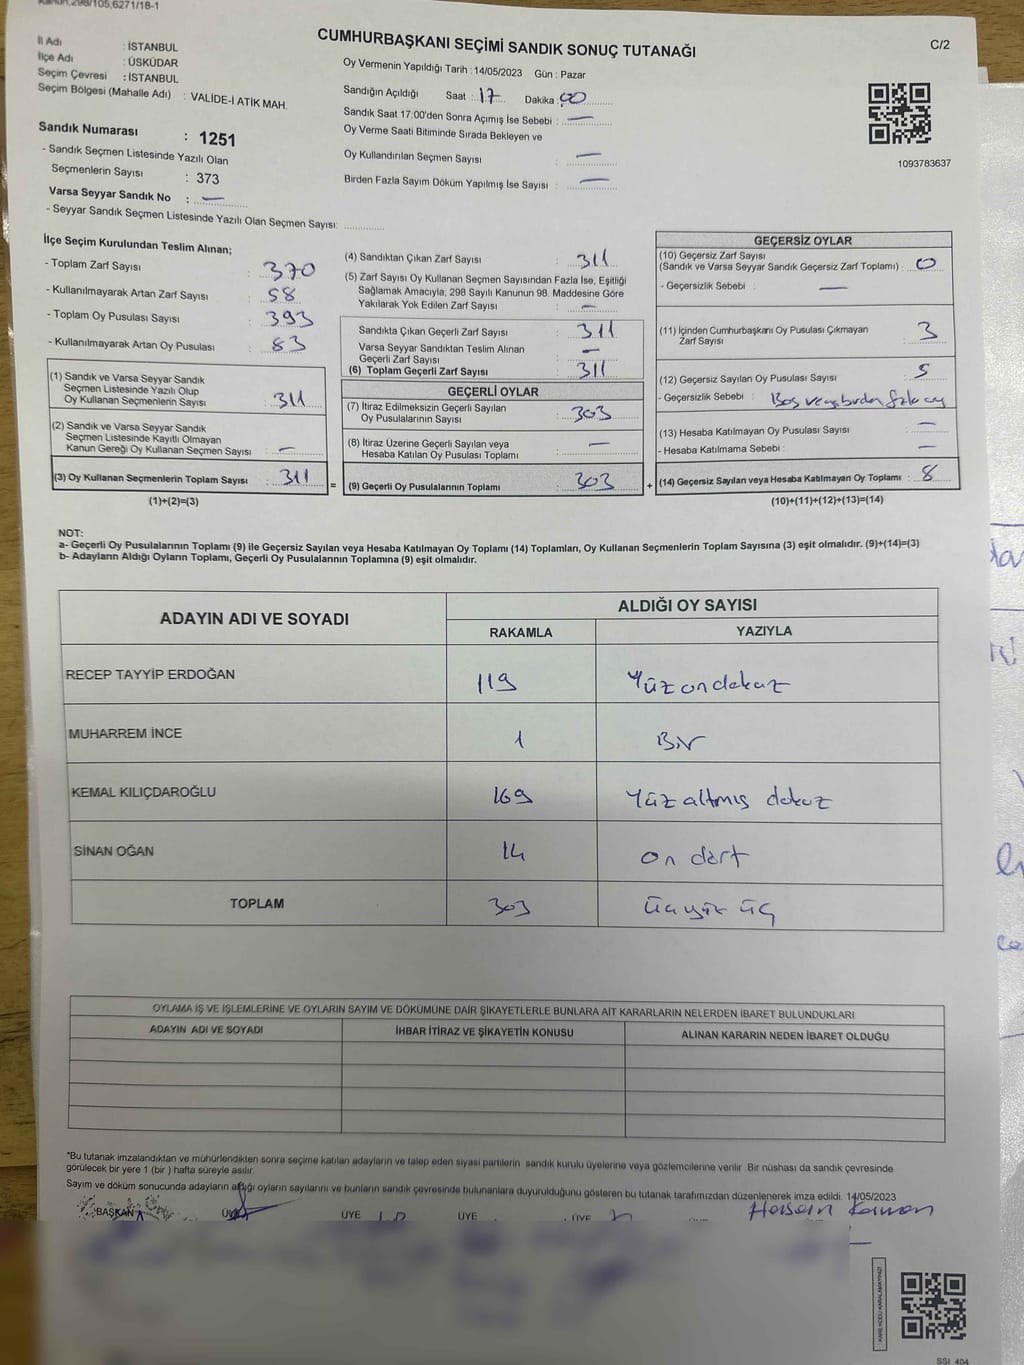 Kanun:298/105,6271/18-1
CUMHURBAŞKANI SEÇİMİ SANDIK SONUÇ TUTANAĞI
C/2
İl Adı : İSTANBUL
İlçe Adı : ÜSKÜDAR
Seçim Çevresi : İSTANBUL
Seçim Bölgesi (Mahalle Adı) : VALİDE-İ ATİK MAH.
Sandık Numarası : 1251
- Sandık Seçmen Listesinde Yazılı Olan
Seçmenlerin Sayısı : 373
Varsa Seyyar Sandık No : —
- Seyyar Sandık Seçmen Listesinde Yazılı Olan Seçmen Sayısı:
Oy Vermenin Yapıldığı Tarih : 14/05/2023 Gün : Pazar
Sandığın Açıldığı Saat : 17 Dakika : 00
Sandık Saat 17.00'den Sonra Açımış İse Sebebi : —
Oy Verme Saati Bitiminde Sırada Bekleyen ve
Oy Kullandırılan Seçmen Sayısı : —
Birden Fazla Sayım Döküm Yapılmış İse Sayısı : —
1093783637
İlçe Seçim Kurulundan Teslim Alınan;
- Toplam Zarf Sayısı : 370
- Kullanılmayarak Artan Zarf Sayısı : 58
- Toplam Oy Pusulası Sayısı : 393
- Kullanılmayarak Artan Oy Pusulası : 83
(1) Sandık ve Varsa Seyyar Sandık
Seçmen Listesinde Yazılı Olup
Oy Kullanan Seçmenlerin Sayısı : 311
(2) Sandık ve Varsa Seyyar Sandık
Seçmen Listesinde Kayıtlı Olmayan
Kanun Gereği Oy Kullanan Seçmen Sayısı : —
(3) Oy Kullanan Seçmenlerin Toplam Sayısı : 311 =
(1)+(2)=(3)
(4) Sandıktan Çıkan Zarf Sayısı : 311
(5) Zarf Sayısı Oy Kullanan Seçmen Sayısından Fazla İse, Eşitliği
Sağlamak Amacıyla; 298 Sayılı Kanunun 98. Maddesine Göre
Yakılarak Yok Edilen Zarf Sayısı : —
Sandıkta Çıkan Geçerli Zarf Sayısı : 311
Varsa Seyyar Sandıktan Teslim Alınan
Geçerli Zarf Sayısı : —
(6) Toplam Geçerli Zarf Sayısı : 311
GEÇERLİ OYLAR
(7) İtiraz Edilmeksizin Geçerli Sayılan
Oy Pusulalarının Sayısı : 303
(8) İtiraz Üzerine Geçerli Sayılan veya
Hesaba Katılan Oy Pusulası Toplamı : —
(9) Geçerli Oy Pusulalarının Toplamı : 303 +
GEÇERSİZ OYLAR
(10) Geçersiz Zarf Sayısı
(Sandık ve Varsa Seyyar Sandık Geçersiz Zarf Toplamı) : 0
- Geçersizlik Sebebi : —
(11) İçinden Cumhurbaşkanı Oy Pusulası Çıkmayan
Zarf Sayısı : 3
(12) Geçersiz Sayılan Oy Pusulası Sayısı : 5
- Geçersizlik Sebebi : Boş veya birden fazla oy
(13) Hesaba Katılmayan Oy Pusulası Sayısı : —
- Hesaba Katılmama Sebebi : —
(14) Geçersiz Sayılan veya Hesaba Katılmayan Oy Toplamı : 8
(10)+(11)+(12)+(13)=(14)
NOT:
a- Geçerli Oy Pusulalarının Toplamı (9) ile Geçersiz Sayılan veya Hesaba Katılmayan Oy Toplamı (14) Toplamları, Oy Kullanan Seçmenlerin Toplam Sayısına (3) eşit olmalıdır. (9)+(14)=(3)
b- Adayların Aldığı Oyların Toplamı, Geçerli Oy Pusulalarının Toplamına (9) eşit olmalıdır.
ADAYIN ADI VE SOYADI ALDIĞI OY SAYISI
RAKAMLA YAZIYLA
RECEP TAYYİP ERDOĞAN 119 Yüz ondokuz
MUHARREM İNCE 1 Bir
KEMAL KILIÇDAROĞLU 169 Yüz altmış dokuz
SİNAN OĞAN 14 on dört
TOPLAM 303 üçyüz üç
OYLAMA İŞ VE İŞLEMLERİNE VE OYLARIN SAYIM VE DÖKÜMÜNE DAİR ŞİKAYETLERLE BUNLARA AİT KARARLARIN NELERDEN İBARET BULUNDUKLARI
ADAYIN ADI VE SOYADI İHBAR İTİRAZ VE ŞİKAYETİN KONUSU ALINAN KARARIN NEDEN İBARET OLDUĞU
*Bu tutanak imzalandıktan ve mühürlendikten sonra seçime katılan adayların ve talep eden siyasi partilerin sandık kurulu üyelerine veya gözlemcilerine verilir. Bir nüshası da sandık çevresinde
görülecek bir yere 1 (bir ) hafta süreyle asılır.
Sayım ve döküm sonucunda adayların aldığı oyların sayılarını ve bunların sandık çevresinde bulunanlara duyurulduğunu gösteren bu tutanak tarafımızdan düzenlenerek imza edildi. 14/05/2023
BAŞKAN ÜYE ÜYE ÜYE ÜYE
SSİ 404